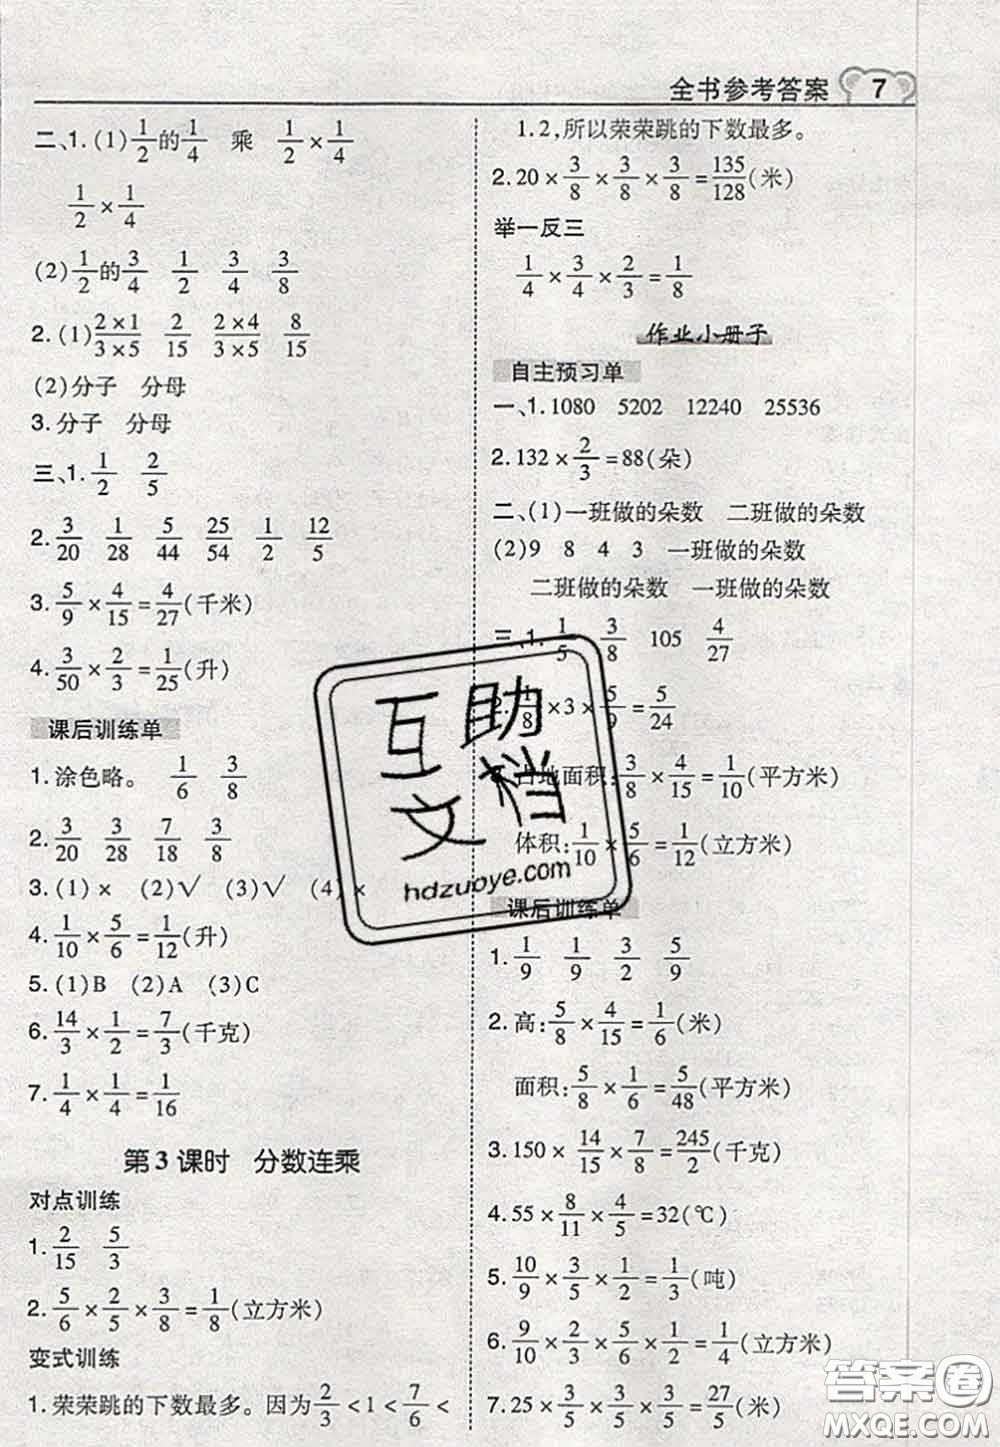 全书参考答案 7
二、1. (1) 1/2 的 1/4 乘 1/2 × 1/4
1/2 × 1/4
(2) 1/2 的 3/4 1/2 3/4 3/8
2. (1) 2×1/3×5 2/15 2×4/3×5 8/15
(2)分子 分母
3. 分子 分母
三、1. 1/2 2/5
2. 3/20 1/28 5/44 25/54 1/2 12/5
3. 5/9 × 4/15 = 4/27 (千米)
4. 3/50 × 2/3 = 1/25 (升)
课后训练单
1. 涂色略。 1/6 3/8
2. 3/20 3/8 7/18 3/8
3. (1) × (2)√ (3)√ (4) ×
4. 1/10 × 5/6 = 1/12 (升)
5. (1)B (2)A (3)C
6. 14/3 × 1/2 = 7/3 (千克)
7. 1/4 × 1/4 = 1/16
第3课时 分数连乘
对点训练
1. 2/15 5/3
2. 5/6 × 2/5 × 3/8 = 1/8 (立方米)
变式训练
1. 荣荣跳的下数最多。因为 2/3 < 1 < 7/6 <
1.2,所以荣荣跳的下数最多。
2. 20 × 3/8 × 3/8 × 3/8 = 135/128 (米)
举一反三
1/4 × 3/4 × 2/3 = 1/8
作业小册子
自主预习单
一、1. 1080 5202 12240 25536
2. 132 × 2/3 = 88(朵)
二、(1)一班做的朵数 二班做的朵数
(2)9 8 4 3 一班做的朵数
二班做的朵数 一班做的朵数
三、1. 1/5 3/8 105 4/27
2. 1/8 × 3 × 5/9 = 5/24
占地面积: 3/8 × 4/15 = 1/10 (平方米)
体积: 1/10 × 5/6 = 1/12 (立方米)
课后训练单
1. 1/9 1/9 3/2 5/9
2. 高: 5/8 × 4/15 = 1/6 (米)
面积: 5/8 × 1/6 = 5/48 (平方米)
3. 150 × 14/15 × 7/8 = 245/2 (千克)
4. 55 × 8/11 × 4/5 = 32(℃)
5. 10/9 × 3/5 × 1/2 = 1/3 (吨)
6. 9/10 × 2/3 × 5/6 × 1/2 = 1/4 (立方米)
7. 25 × 3/5 × 3/5 × 3/5 = 27/5 (米)
互助
文档
hdzuoye.com
答案圈
MXQE.COM